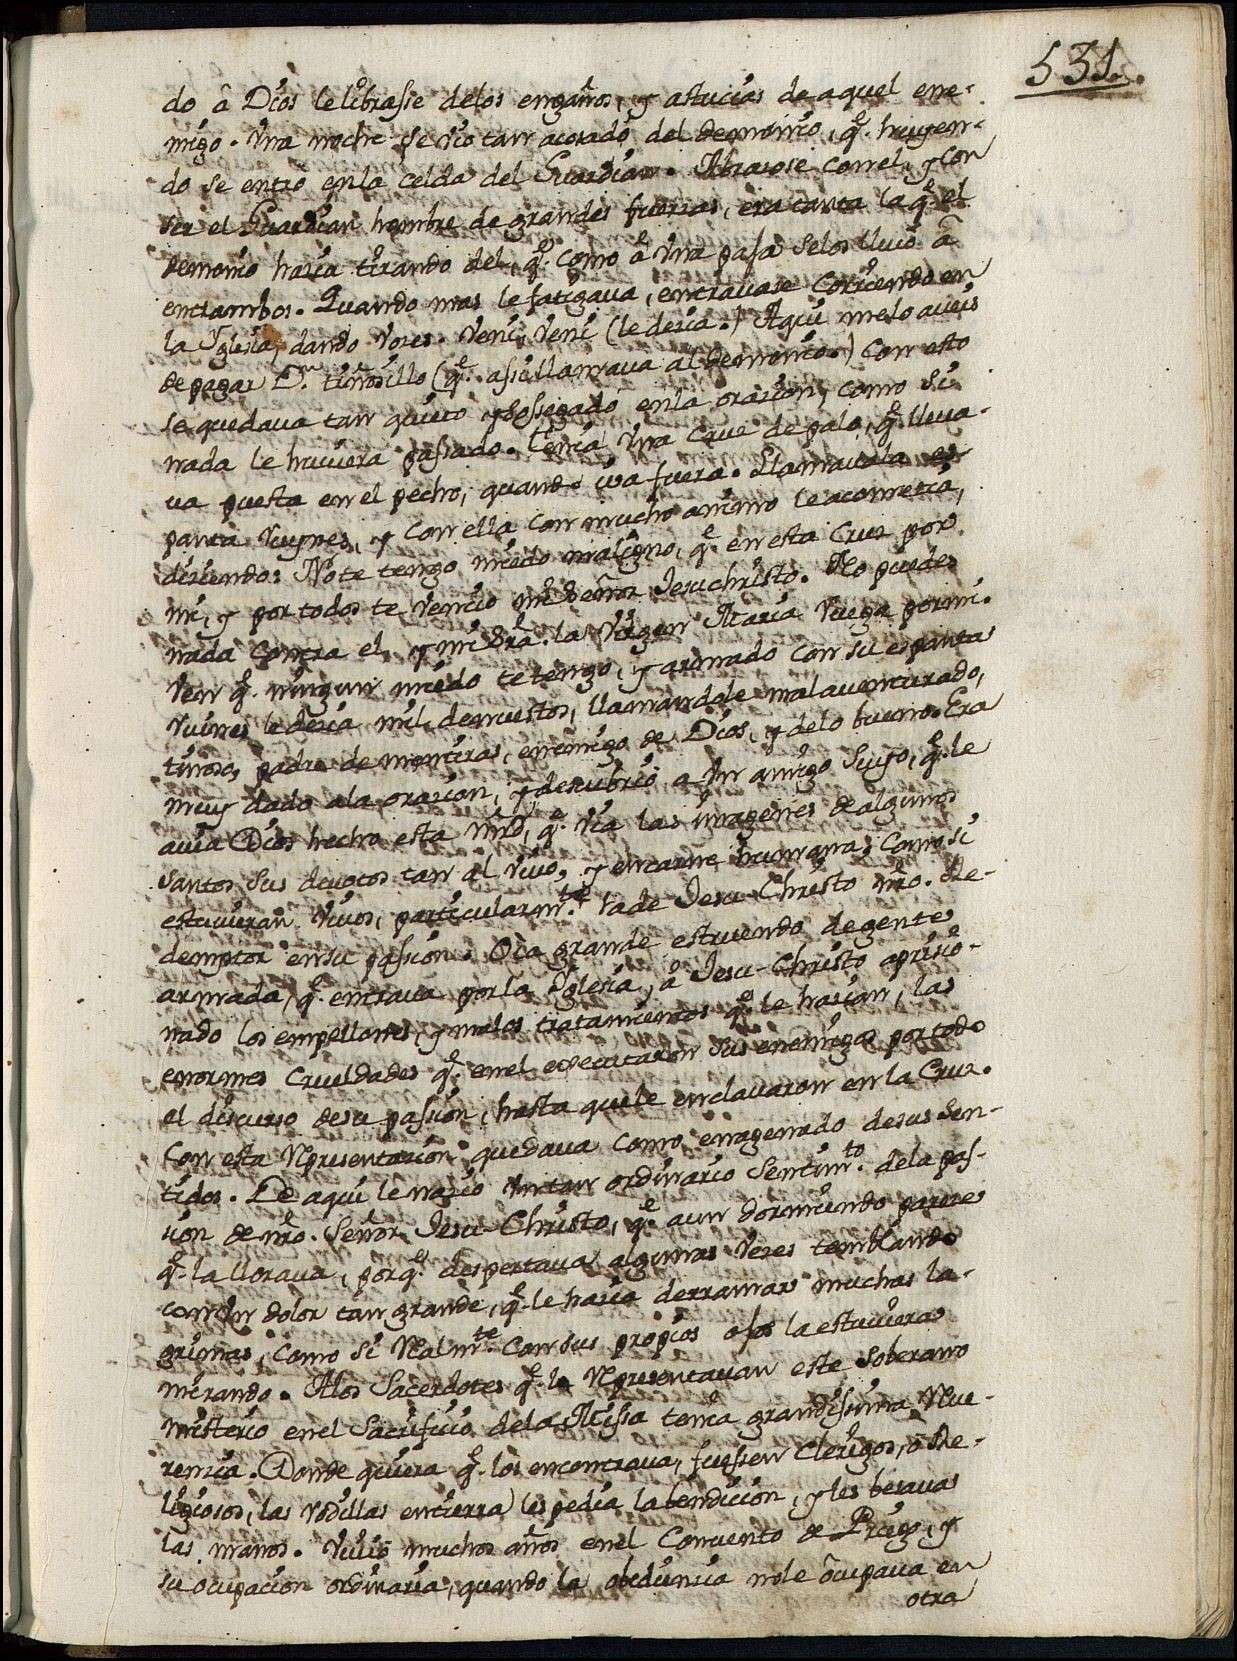 531.
do â Dios le librasse delos engaños, y astucias de aquel ene-
migo. Una noche se vio tan acosado del demonio, q̃. huyen-
do se entro en la celda del Guardian. Abrazose con el, y con
ser el Guardian hombre de grandes fuerzas, era tanta la q̃. el
demonio hazia tirando del, q̃. como â una paja selos lleuô â
entrambos. Quando mas le fatigaua, entrauase corriendo en
la Yglesia, dando vozes. Veni, Veni (le dezia.) Aqui melo aueis
de pagar Dn. tiñosillo (q̃. assi llamaua al demonio.) Con esto
se quedaua tan quieto y sossegado en la orazion, como si
nada le huuiera passado. Tenia una Cruz de palo, q̃. lleua-
ua puesta en el pecho, quando iva fuera. Llamauala es-
panta Ruynes, y con ella con mucho animo le acometia,
diziendo: No te tengo miedo maligno, q̃. en esta Cruz por
mi, y por todos te vencio mi Señor Jesuchristo. No puedes
nada contra el, y mi Sra. la Virgen Maria ruega por mi.
Ven q̃. ningun miedo te tengo, y armado con su espanta
ruines le dezia mil denuestos, llamandole malauenturado,
tiñoso, padre de mentiras, enemigo de Dios, y delo bueno. Era
muy dado ala orazion, y descubrio a un amigo suyo, q̃. le
auia Dios hecho esta mrd, q̃. via las imagenes de algunos
santos sus deuotos tan al viuo, y en carne humana, como si
estuuieran viuos, particularmte. la de Jesu-Christo nro. Re-
demptor en su passion. Oia grande estruendo de gente
armada, q̃. entraua por la Yglesia, â Jesu-Christo aprisio-
nado los empellones, y malos tratamientos q̃. le hazian, las
enormes crueldades q̃. en el executaron sus enemigos por todo
el discurso desu passion, hasta que le enclauaron en la Cruz.
Con esta representazion quedaua como enagenado desus sen-
tidos. De aqui le nazio un tan ordinario sentimto. dela pas-
sion de nro. Señor Jesu-Christo, q̃. aun dormiendo pareze
q̃. la lloraua, porq̃. despertaua algunas vezes temblando
con un dolor tan grande, q̃. le hazia derramar muchas la-
grimas, como si realmte. con sus propios ojos la estuuiera
mirando. Alos Sacerdotes q̃. le representauan este soberano
misterio en el Sacrificio dela Missa tenia grandissima reue-
renzia. Donde quiera q̃. los encontraua, fuessen Clerigos, ô Re-
ligiosos, las rodillas en tierra les pedia la bendicion, y les besaua
las manos. Viuio muchos años en el Conuento de Priego, y
su ocupacion ordinaria, quando la obediencia no le ôcupaua en
otra